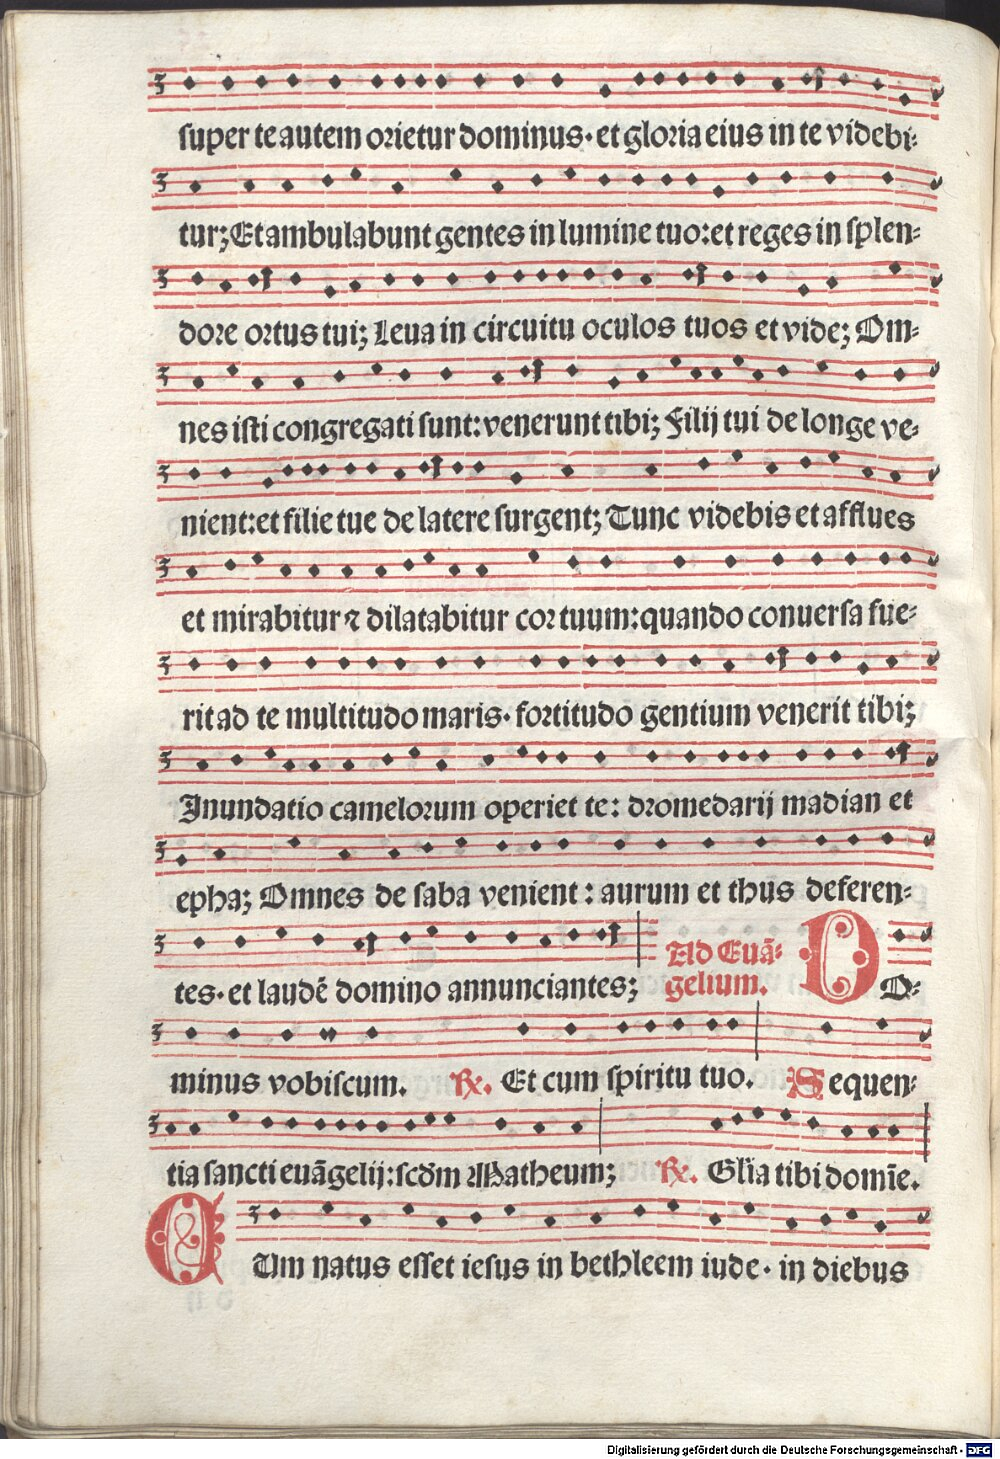 super te autem orietur dominus· et gloria eius in te videbi-
tur; Et ambulabunt gentes in lumine tuo: et reges in splen-
dore ortus tui; Leua in circuitu oculos tuos et vide; Om-
nes isti congregati sunt: venerunt tibi; Filij tui de longe ve-
nient: et filie tue de latere surgent; Tunc videbis et afflues
et mirabitur ⁊ dilatabitur cor tuum: quando conuersa fue-
rit ad te multitudo maris· fortitudo gentium venerit tibi;
Inundatio camelorum operiet te: dromedarij madian et
epha; Omnes de saba venient: aurum et thus deferen-
tes· et laudē domino annunciantes; Ad Euā-
gelium. DO-
minus vobiscum. ℞. Et cum spiritu tuo. Sequen-
tia sancti euāgelij: scḋm Matheum; ℞. Glia tibi domīe.
CUm natus esset iesus in bethleem iude· in diebus
Digitalisierung gefördert durch die Deutsche Forschungsgemeinschaft - DFG